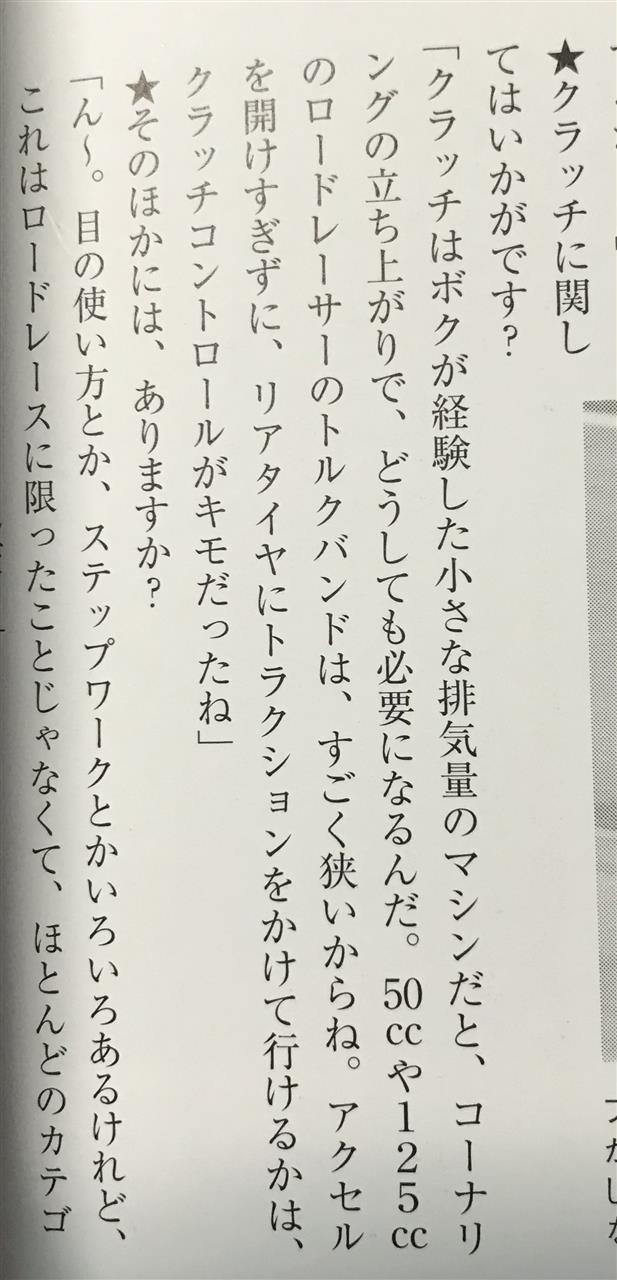 ★クラッチに関し
てはいかがです?
「クラッチはボクが経験した小さな排気量のマシンだと、コーナリ
ングの立ち上がりで、どうしても必要になるんだ。50ccや125cc
のロードレーサーのトルクバンドは、すごく狭いからね。アクセル
を開けすぎずに、リアタイヤにトラクションをかけて行けるかは、
クラッチコントロールがキモだったね」
★そのほかには、ありますか?
「ん〜。目の使い方とか、ステップワークとかいろいろあるけれど、
これはロードレースに限ったことじゃなくて、ほとんどのカテゴ